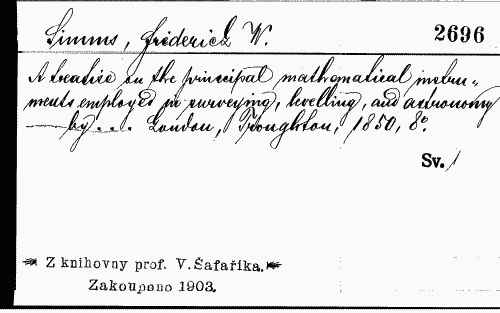 Simms, Frederick W. 2696
A treatise on the principal mathematical instru-
ments employed in surveying, levelling, and astronomy
— by ... London, Troughton, 1850, 8°.
Sv. 1
Z knihovny prof. V. Šafaříka.
Zakoupeno 1903.